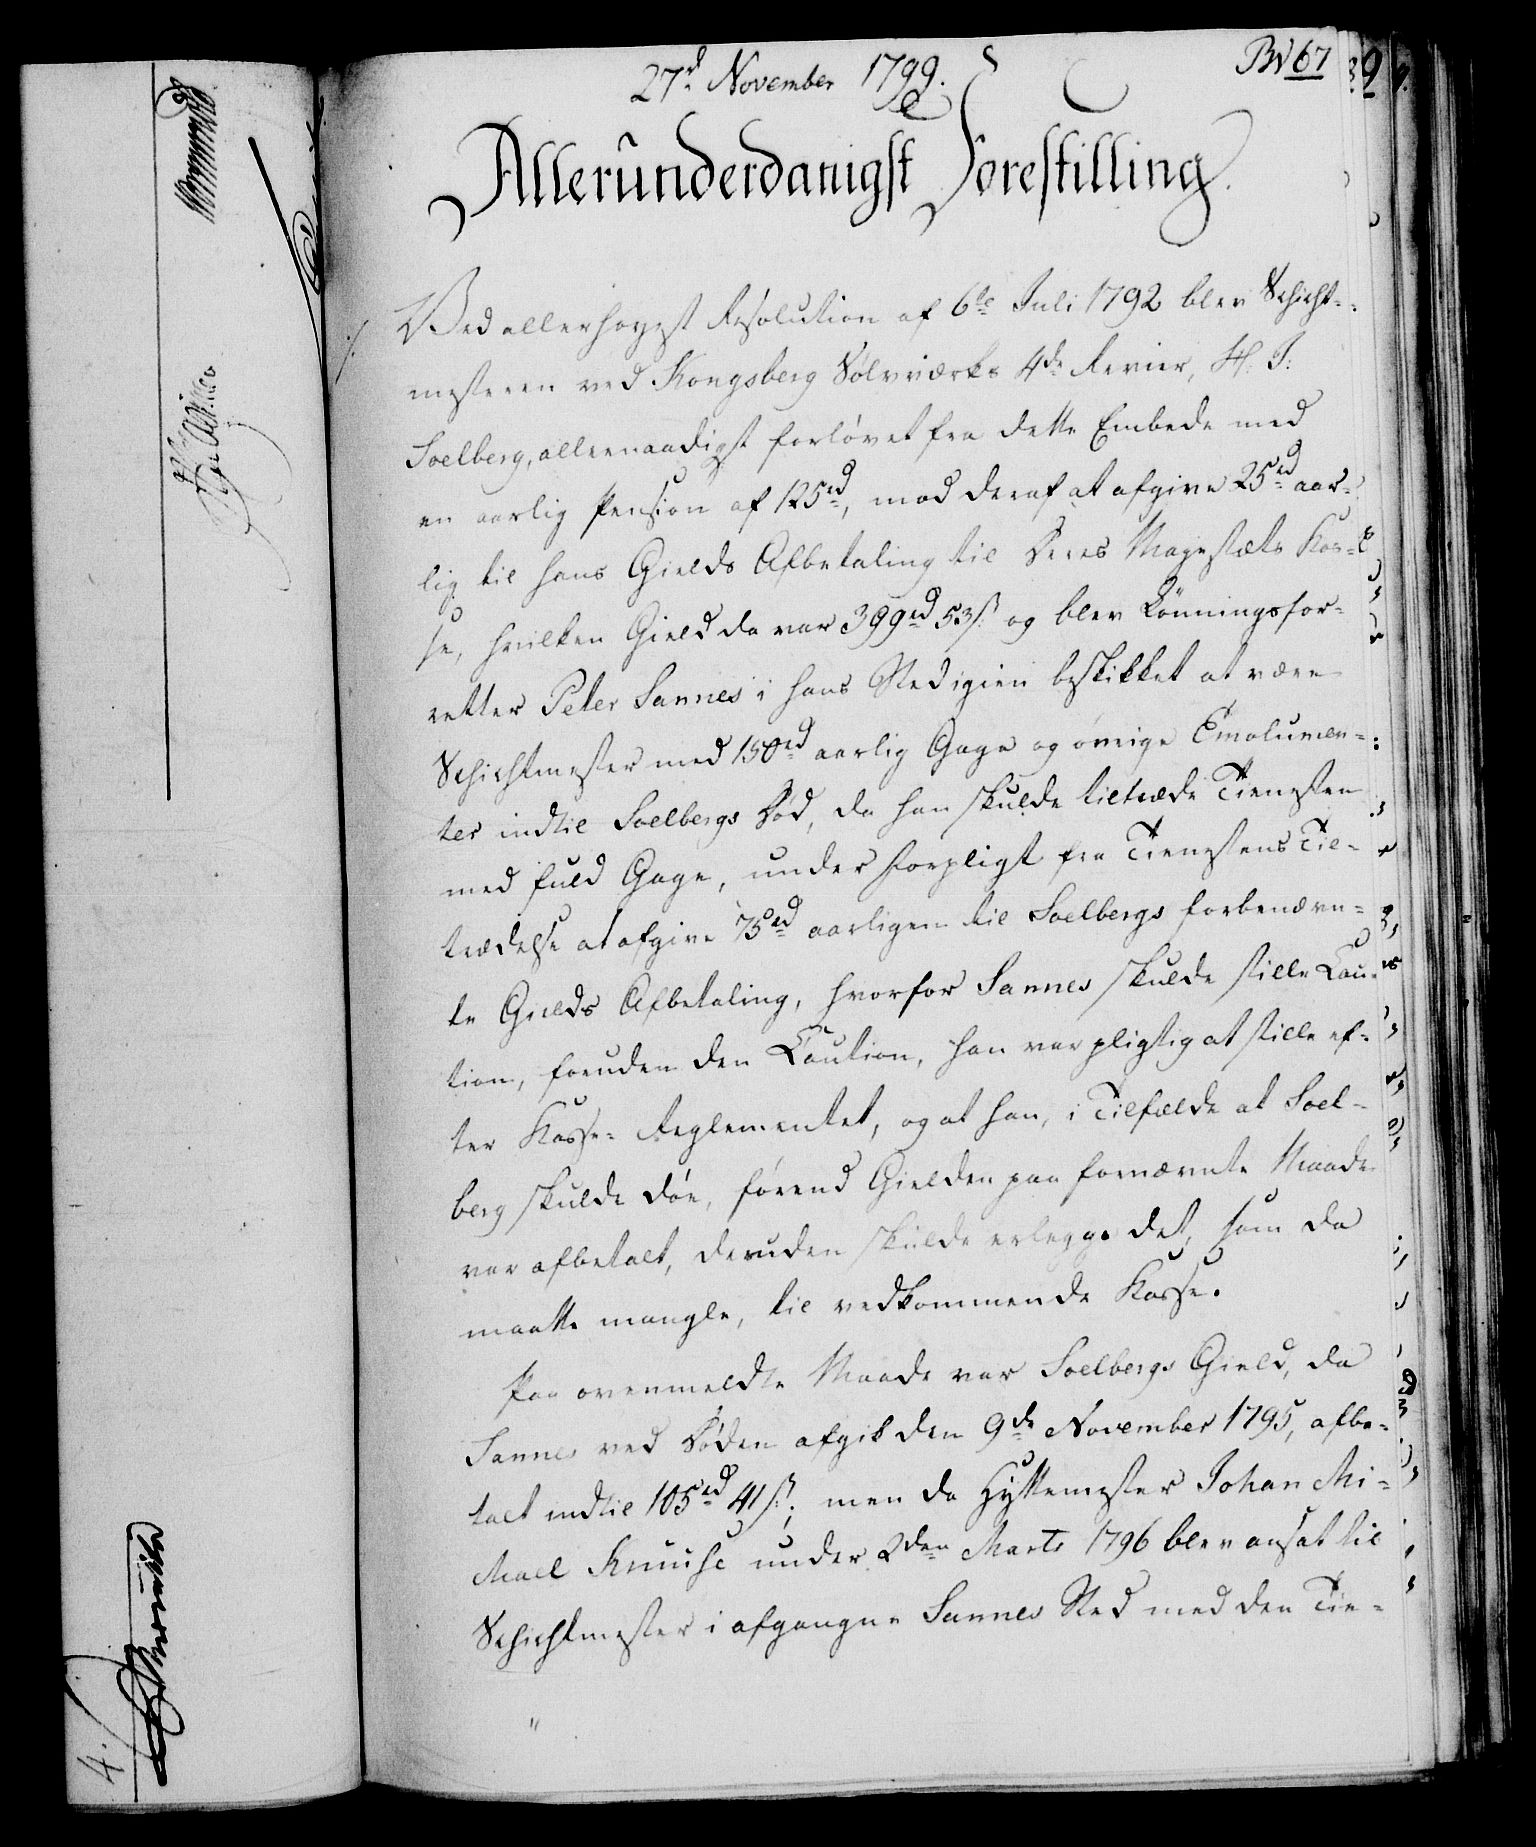 27d November 1799.
BN 67
Allerunderdanigst Forestilling.
Ved allerhøyest Resolution af 6te Juli 1792 blev Schicht-
mesteren ved Kongsberg Sølvværks 4de Revier, H. J:
Soelberg, allernaadigst forløvet fra dette Embede med
en aarlig Pension af 125rd, mod deraf at afgive 25rd aar-
lig til hans Gields Afbetaling til Deres Majestæts Kas-
se, hvilken Gield da var 399rd 53s: og blev Lønningsfor-
retter Peter Sannes i hans Sted igien beskikket at være
Schichtmester med 150rd aarlig Gage og øvrige Emolumen-
ter indtil Soelbergs Død, da han skulde tiltræde Tienesten
med fuld Gage, under Forpligt fra Tienestens Til-
trædelse at afgive 75rd aarligen til Soelbergs forbenævn-
te Gields Afbetaling, hvorfor Sannes skulde stille Cau-
tion, foruden den Caution, han var pligtig at stille ef-
ter Kasse-Reglementet, og at han, i Tilfælde at Soel-
berg skulde døe, førend Gielden paa fornævnte Maade
var afbetalt, desuden skulde erlegge det, som da
maatte mangle, til vedkommende Kasse.
Paa ovenmeldte Maade var Soelbergs Gield, da
Sannes ved Døden afgik den 9de November 1795, afbe-
talt indtil 105rd 41s:; men da Hyttemester Johan Mi-
chael Kruuse under 2den Marts 1796 blev ansat til
Schichtmester i afgangne Sannes Sted med den Tie-
4.